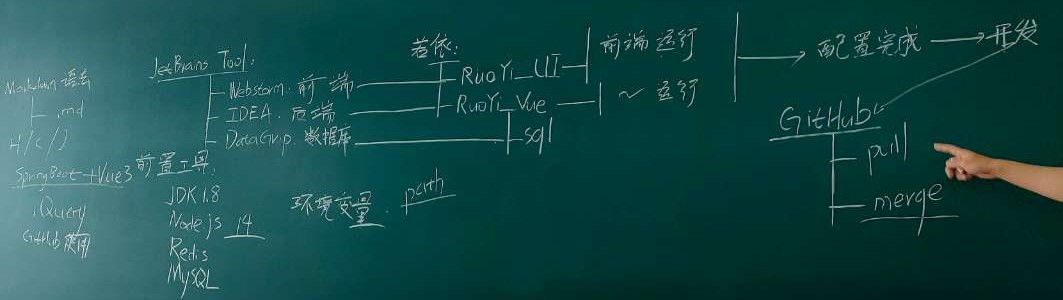 Markdown 语法
.md
H/C/J
SpringBoot+Vue3
jQuery
GitHub 使用
JetBrains Tool:
Webstorm. 前端
IDEA. 后端
DataGrip. 数据库
前置工具.
JDK 1.8
Node js 14
Redis
MySQL
环境变量. path
若依:
RuoYi_UI
RuoYi_Vue
sql
前端运行
~ 运行
配置完成
开发
GitHub
pull
merge